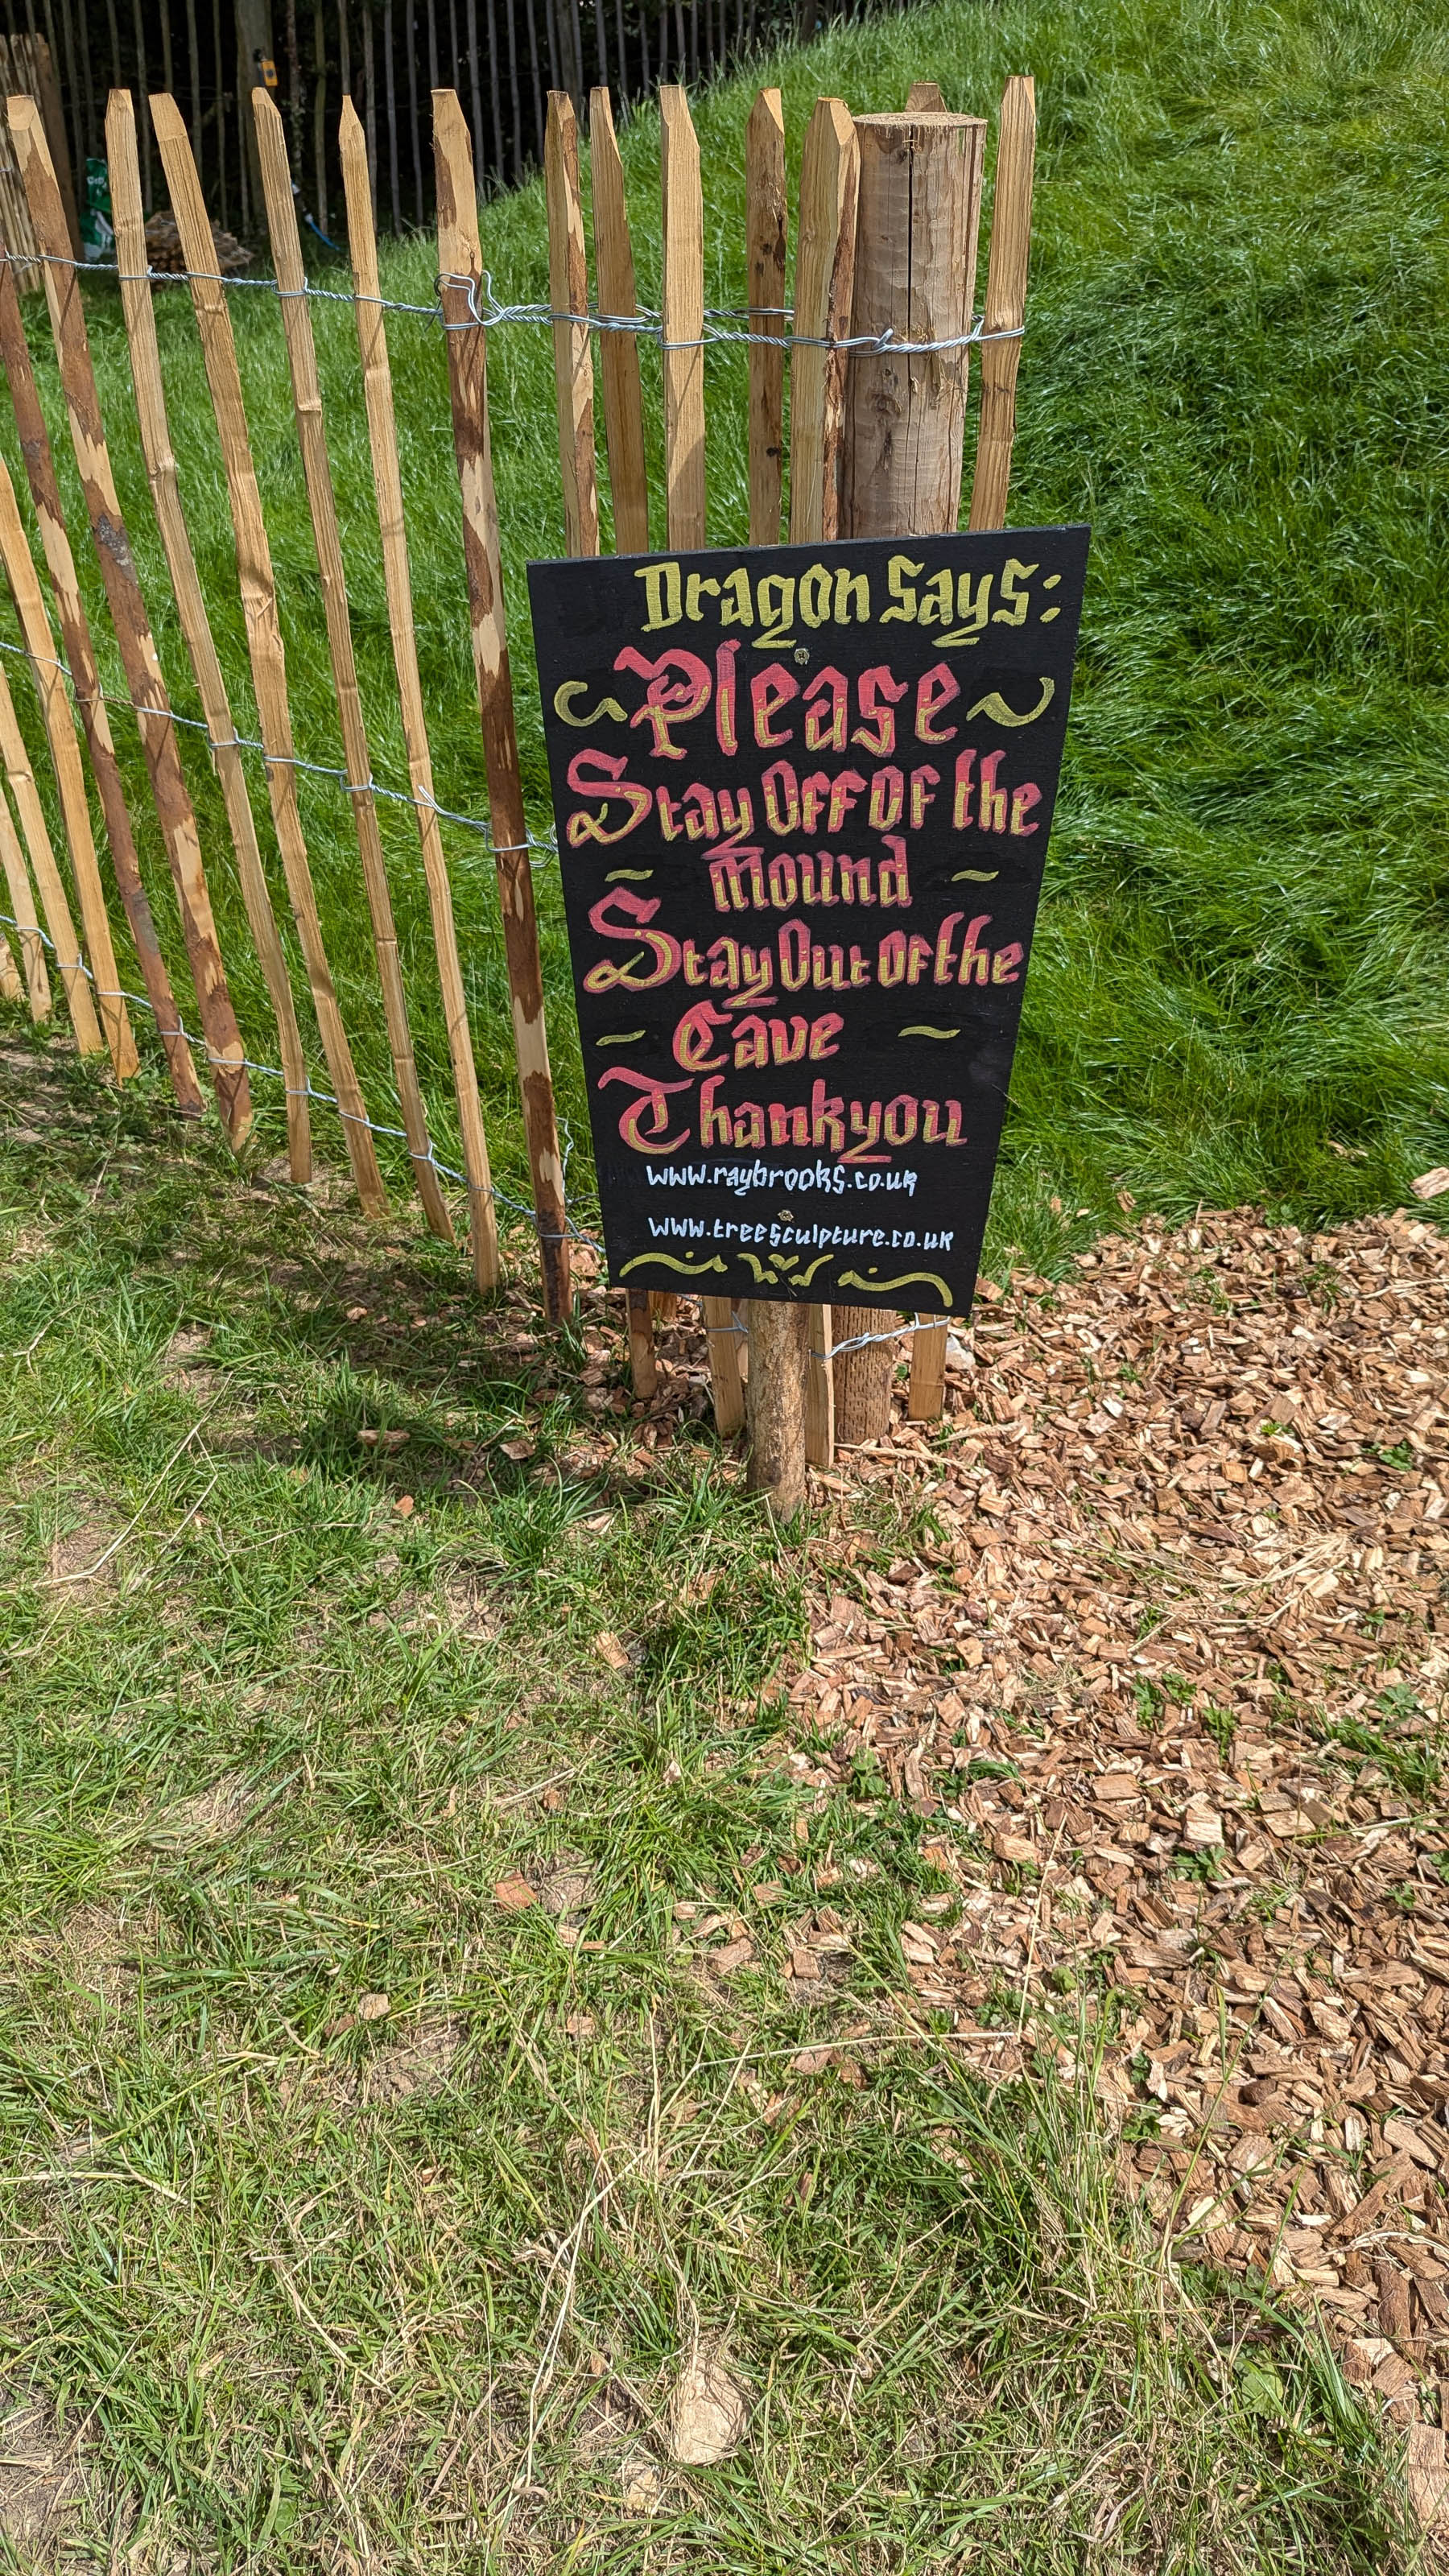 Dragon Says:
Please
Stay Off Of the
Mound
Stay Out Of the
Cave
Thankyou
www.raybrooks.co.uk
www.treesculpture.co.uk